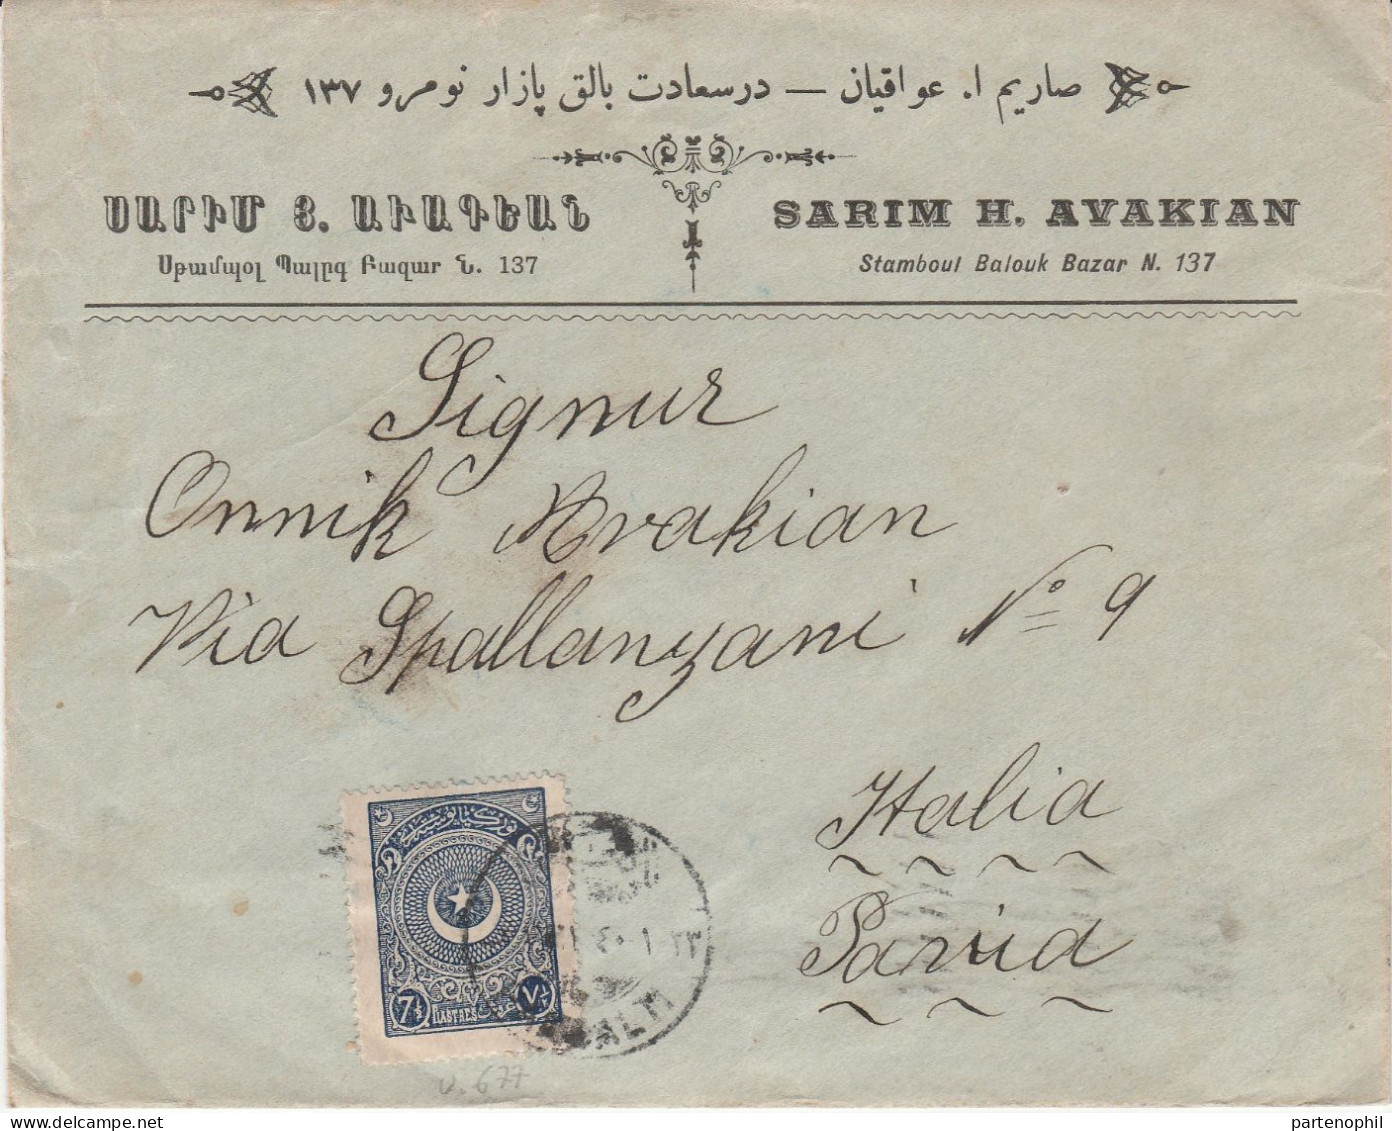 صاريم ا. عواقيان — درسعادت بالق پازار نومرو ١٣٧
ՍԱՐԻՄ Յ. ԱՒԱԳԵԱՆ
Սթամպօլ Պալըգ Բազար Ն. 137
SARIM H. AVAKIAN
Stamboul Balouk Bazar N. 137
Signur
Onnik Avakian
Via Spallanzani No 9
Italia
Pavia
7½ PIASTRES غروش ٧½
v. 677
partenophil